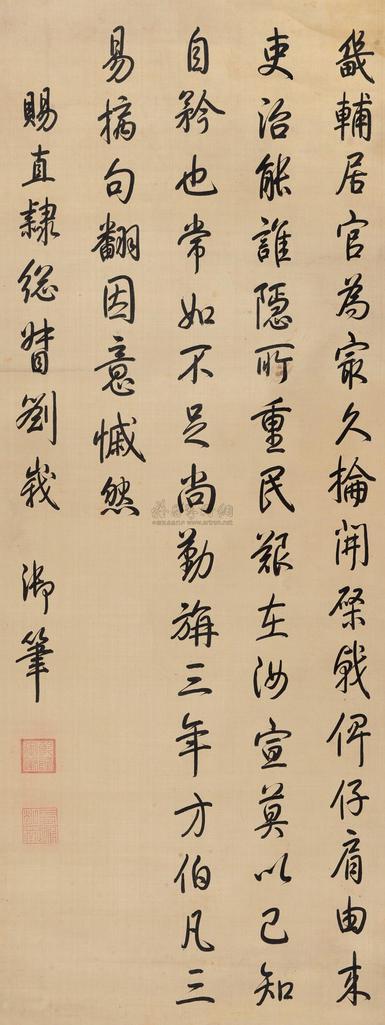 畿輔居官為㝡久掄開棨戟俾仔肩由来
吏治能誰隱所重民艱在汝宣莫以已知
自矜也常如不足尚勤旃三年方伯凡三
易摘句翻因意慽然
賜直隸總督劉峩 御筆